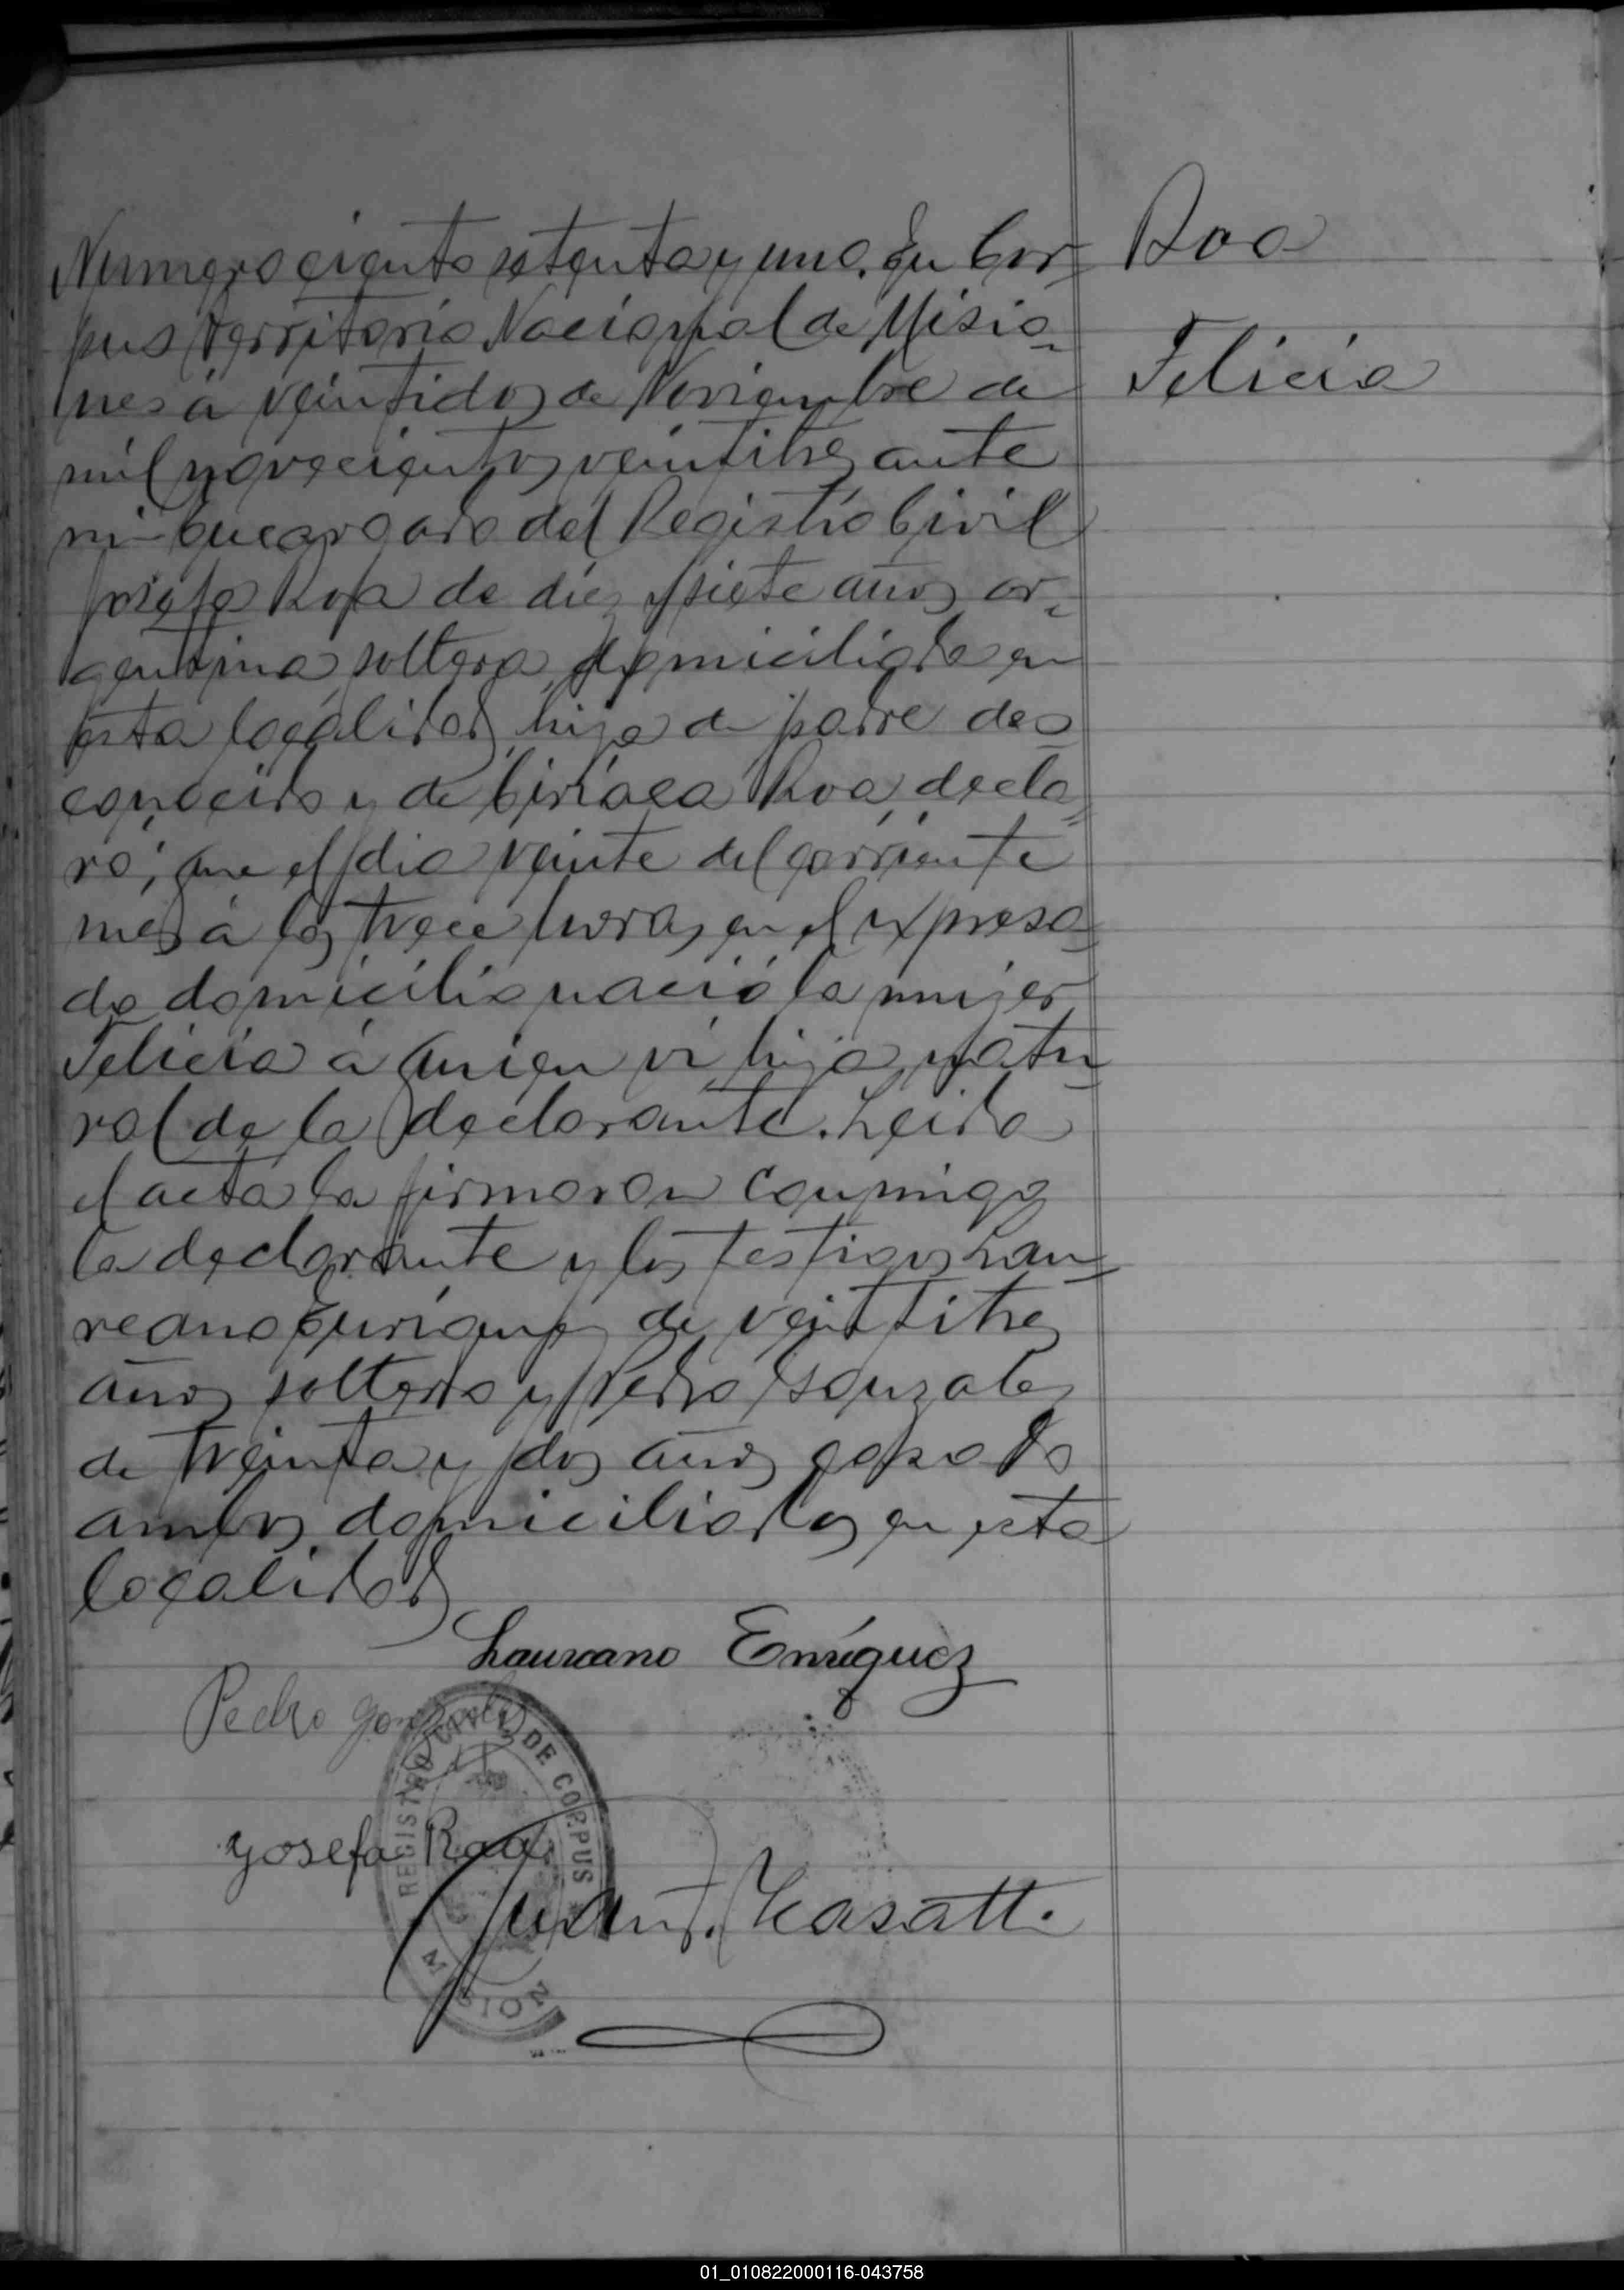 Roa
Felicia
Numero ciento setenta y uno. En Cor-
pus Territorio Nacional de Misio-
nes á veintidos de Noviembre de
mil novecientos veintitres ante
mi Encargado del Registro Civil
Josefa Roa de diez y siete años ar-
gentina soltera domiciliada en
esta localidad, hija de padre des-
conocido y de Ciriaca Roa, decla-
ró; que el dia veinte del corriente
mes á las trece horas en el expresa-
do domicilio nació la mujer
Felicia á quien vi hija natu-
ral de la declarante. Leida
el acta la firmaron conmigo
la declarante y los testigos Lau-
reano Enriquez de veintitres
años soltero y Pedro Gonzalez
de treinta y dos años casado
ambos domiciliados en esta
localidad
Laureano Enríquez
Pedro Gonzalez
REGISTRO CIVIL DE CORPUS
MISION
Josefa Roa
Juan